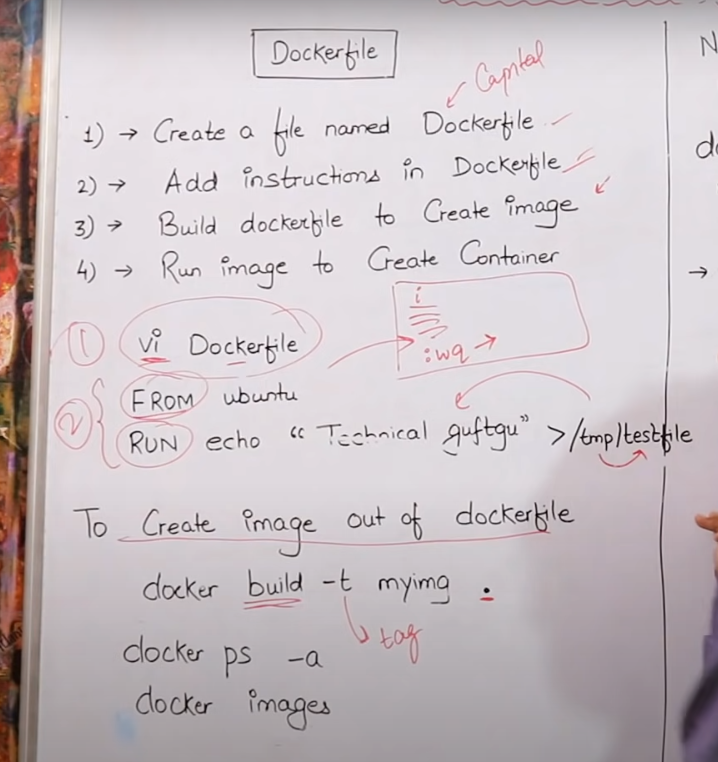 Dockerfile
Capital
1) → Create a file named Dockerfile
2) → Add instructions in Dockerfile
3) → Build dockerfile to Create image
4) → Run image to Create Container
i
:wq →
① vi Dockerfile
② FROM ubuntu
RUN echo “ Technical guftgu” >/tmp/testfile
To Create image out of dockerfile
docker build -t myimg .
tag
docker ps -a
docker images
N
do
→